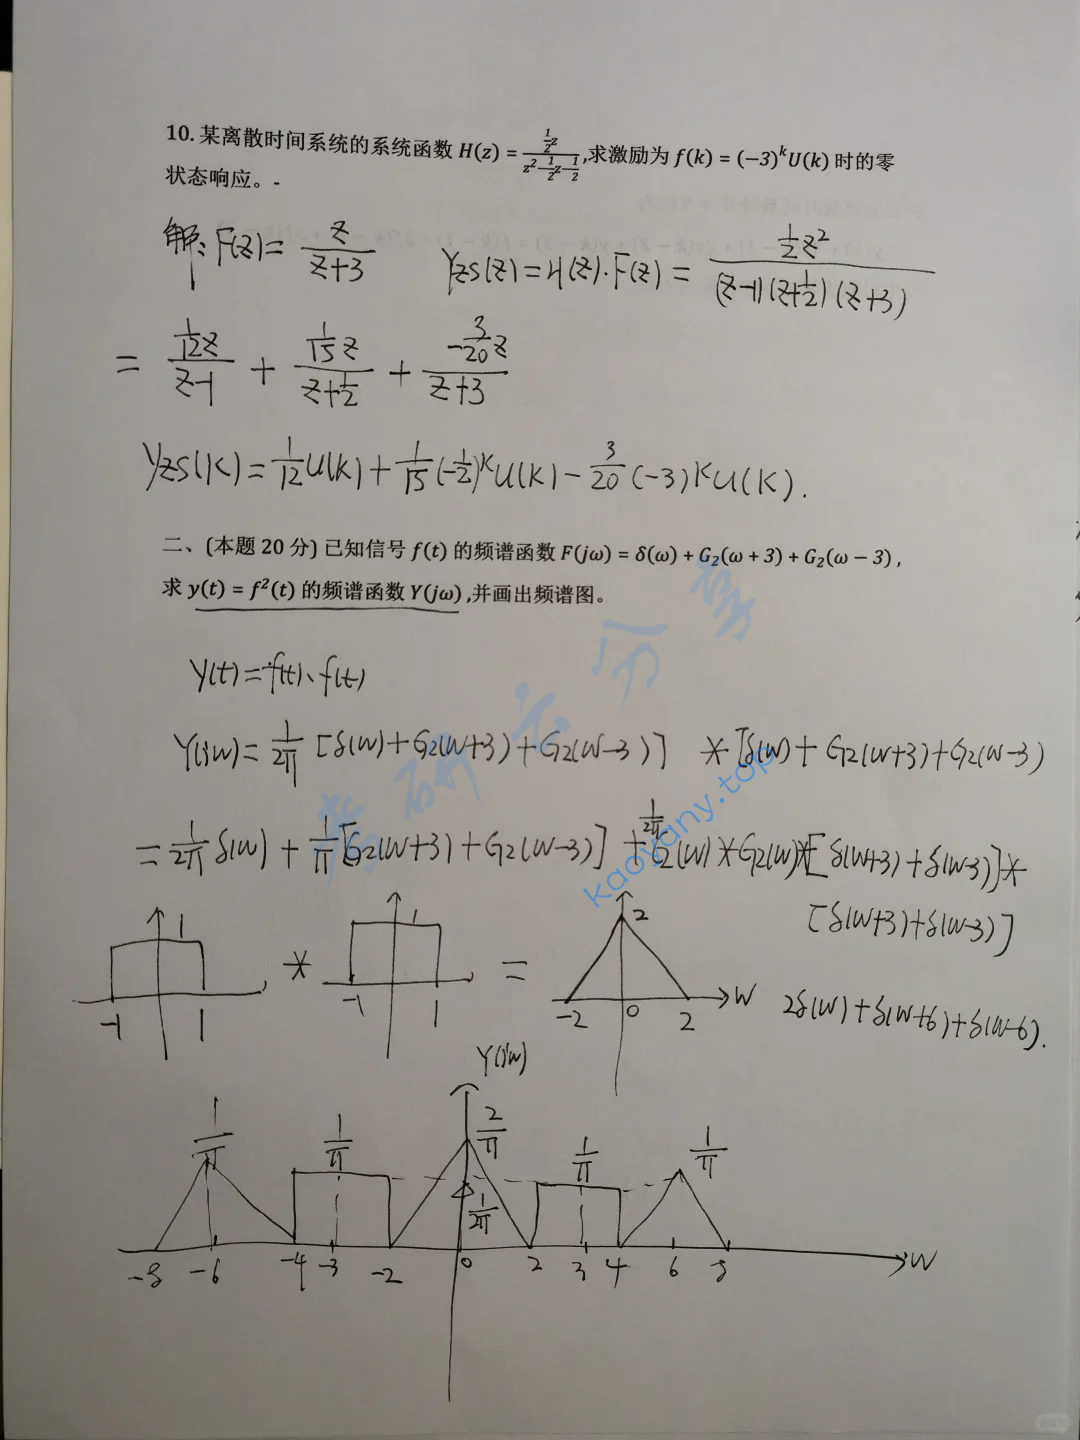 10. 某离散时间系统的系统函数 H(z) = \frac{\frac{1}{2}z}{z^2-\frac{1}{2}z-\frac{1}{2}},求激励为 f(k) = (−3)^k U(k) 时的零
状态响应。-
解: F(z) = \frac{z}{z+3}  Yzs(z) = H(z)·F(z) = \frac{\frac{1}{2}z^2}{(z-1)(z+\frac{1}{2})(z+3)}
= \frac{\frac{1}{12}z}{z-1} + \frac{\frac{1}{15}z}{z+\frac{1}{2}} + \frac{-\frac{3}{20}z}{z+3}
Yzs(k) = \frac{1}{12}U(k) + \frac{1}{15}(-\frac{1}{2})^k U(k) - \frac{3}{20}(-3)^k U(k).
二、(本题 20 分) 已知信号 f(t) 的频谱函数 F(jω) = δ(ω) + G₂(ω + 3) + G₂(ω − 3) ,
求 y(t) = f²(t) 的频谱函数 Y(jω) ,并画出频谱图。
Y(t) = f(t)·f(t)
Y(jw) = \frac{1}{2π} [δ(w)+G2(w+3)+G2(w-3)] * [δ(w)+G2(w+3)+G2(w-3)
= \frac{1}{2π} δ(w) + \frac{1}{π} [G2(w+3)+G2(w-3)] + \frac{1}{2π} G2(w)*G2(w)*[δ(w+3)+δ(w-3)]*
[δ(w+3)+δ(w-3)]
1 * 1 = 2
-1 1 -1 1 -2 0 2 w
2δ(w)+δ(w+6)+δ(w-6).
Y(jw)
\frac{1}{π} \frac{1}{π} \frac{2}{π} \frac{1}{π} \frac{1}{π}
\frac{1}{2π}
-8 -6 -4 -3 -2 0 2 3 4 6 8 w
考研云分享
kaoyany.top